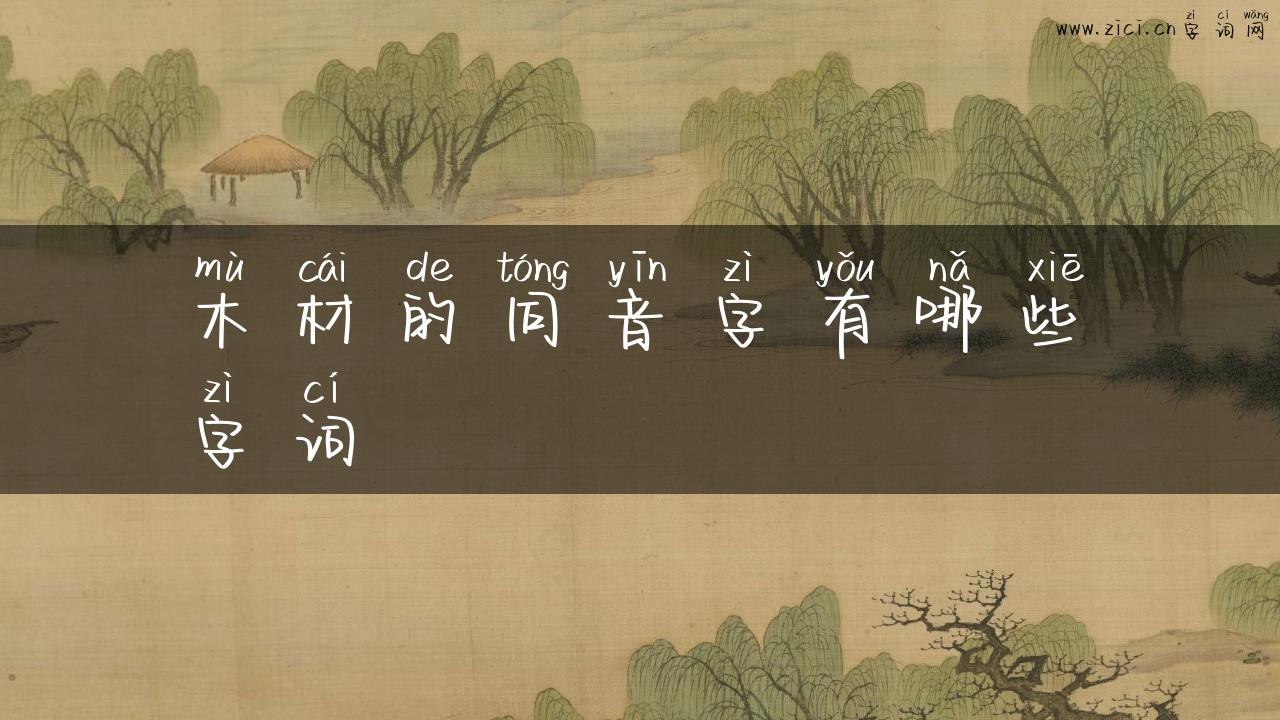 zì cí wǎng
www.zici.cn 字词网
mù cái de tóng yīn zì yǒu nǎ xiē
木材的同音字有哪些
zì cí
字词